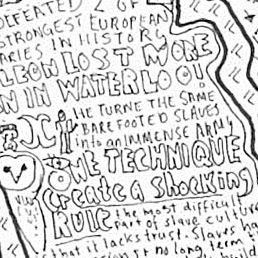 DEFEATED 2 OF
STRONGEST EUROPEAN
ARIES IN HISTORY
LEON LOST MORE
N IN WATERLOO!
HE TURNE THE SAME
BAREFOOTED SLAVES
into an IMMENSE ARMY
ONE TECHNIQUE
Create a Shocking
RULE the most difficult
part of slave culture
that it lacks trust. Slaves ha
no long term